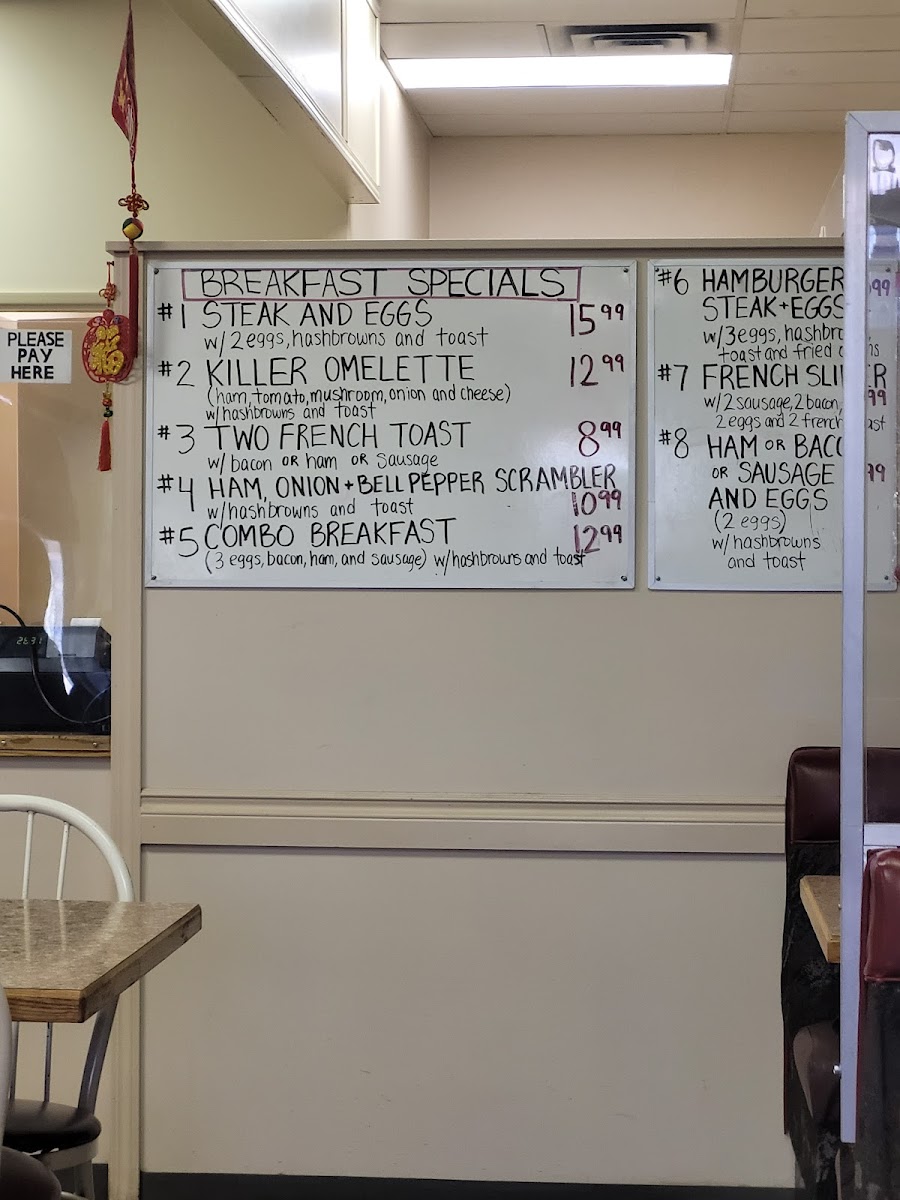 PLEASE
PAY
HERE
福
BREAKFAST SPECIALS
#1 STEAK AND EGGS 15 99
w/ 2 eggs, hashbrowns and toast
#2 KILLER OMELETTE 12 99
(ham, tomato, mushroom, onion and cheese)
w/ hashbrowns and toast
#3 TWO FRENCH TOAST 8 99
w/ bacon OR ham OR sausage
#4 HAM, ONION + BELL PEPPER SCRAMBLER
w/ hashbrowns and toast 10 99
#5 COMBO BREAKFAST 12 99
(3 eggs, bacon, ham, and sausage) w/ hashbrowns and toast
#6 HAMBURGER 99
STEAK + EGGS
w/ 3 eggs,
toast and fried
#7 FRENCH
w/ 2 sausage, 2 bacon, 99
2 eggs and 2 french
#8 HAM OR
OR SAUSAGE 99
AND EGGS
(2 eggs)
w/ hashbrowns
and toast